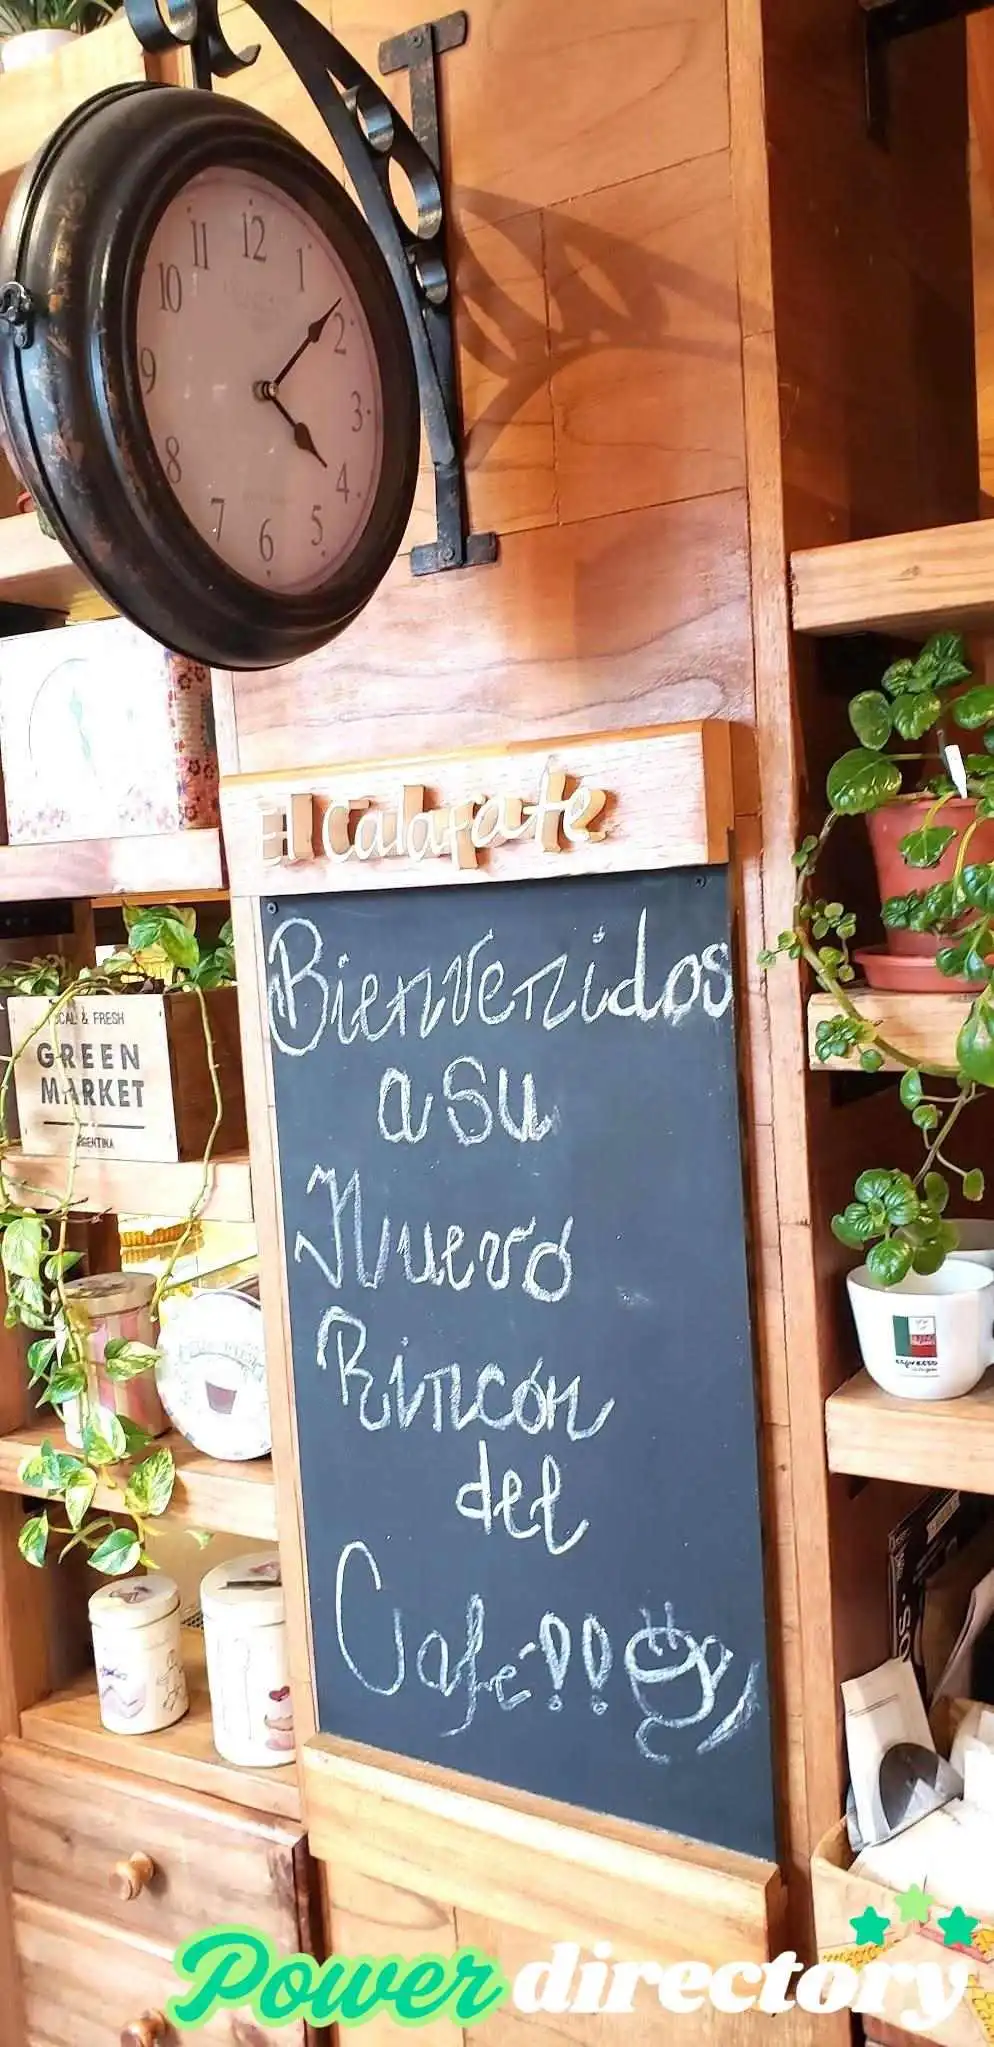 11 12 1
10 2
9 3
8 4
7 6 5
El Calafate
Bienvenidos
a su
Nuevo
Rincón
del
Café!!
& FRESH
GREEN
MARKET
ARGENTINA
ESPRESSO
Power directory